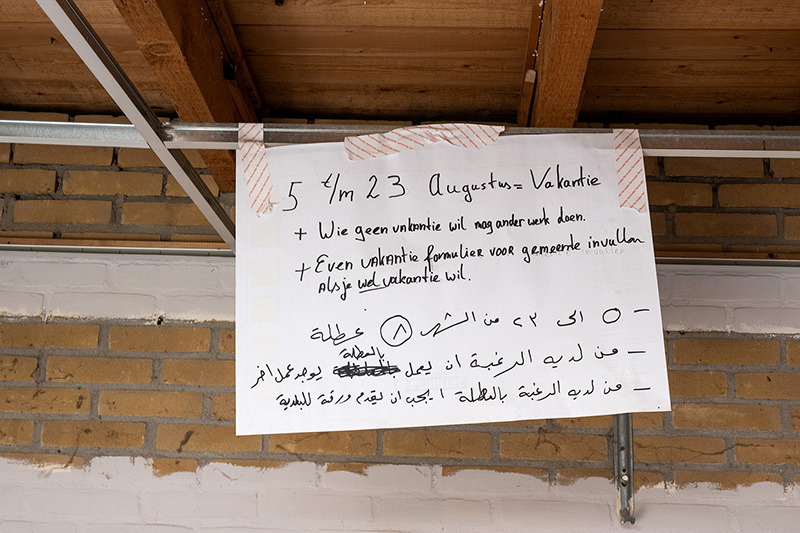 5 t/m 23 Augustus = Vakantie
+ Wie geen vakantie wil mag ander werk doen.
+ Even vakantie formulier voor gemeente invullen
Als je wel vakantie wil.
– ٥ الى ٢٣ من الشهر ٨ عطلة
– من لديه الرغبة ان يعمل بالعطلة يوجد عمل اخر
– من لديه الرغبة بالعطلة يجب ان يقدم ورقة للبلدية